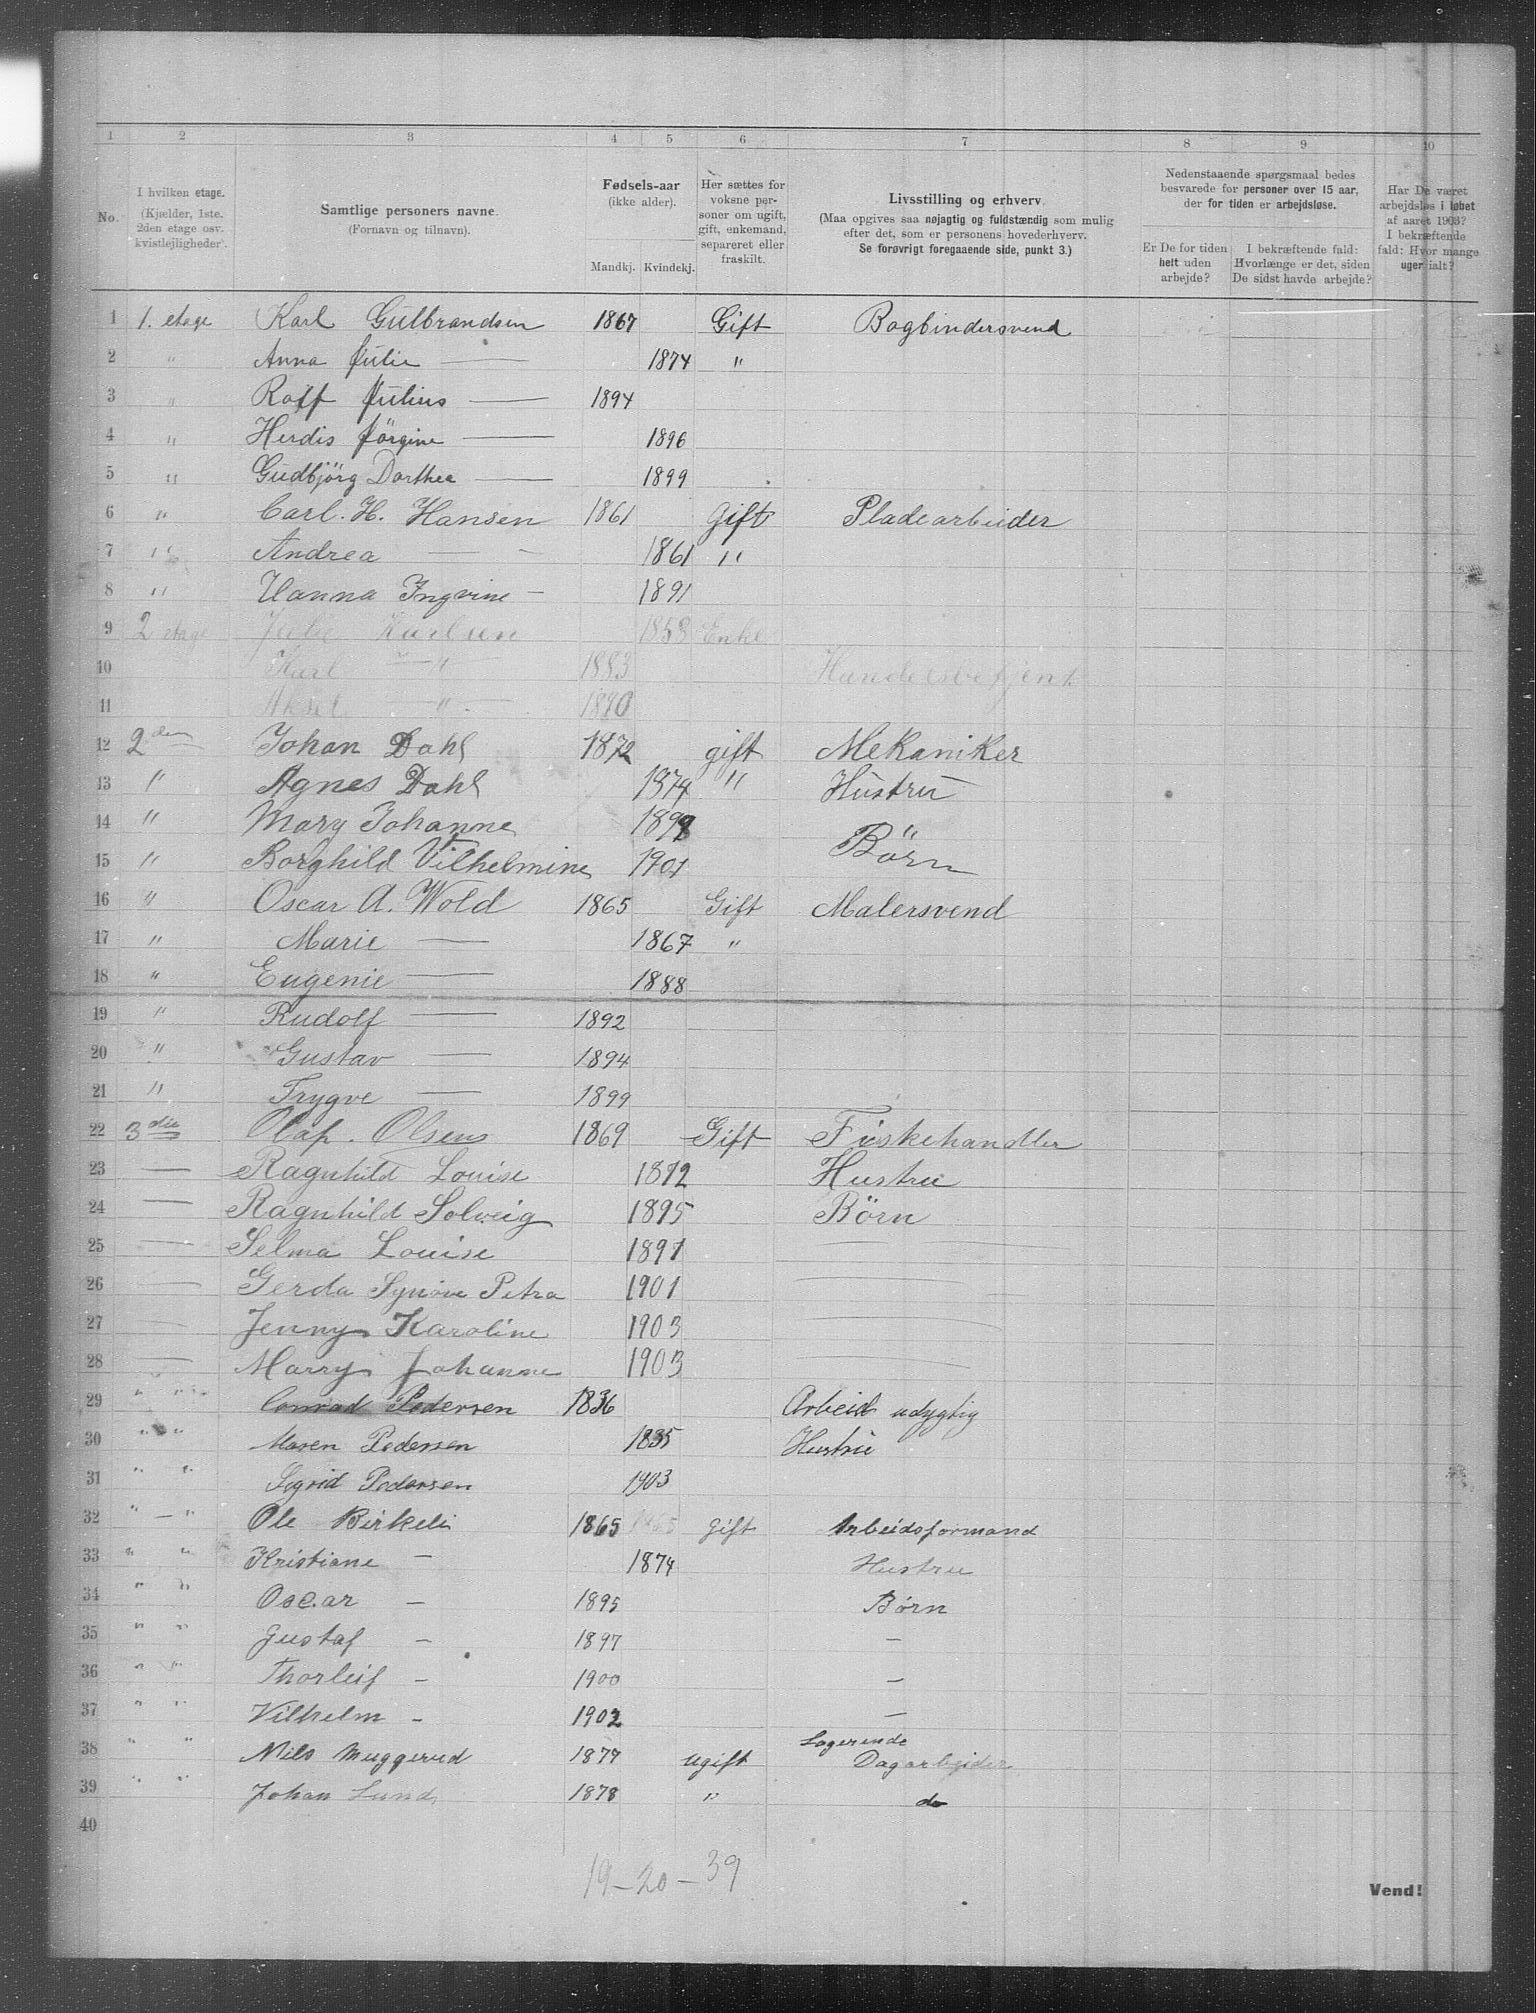 1 2 3 4 5 6 7 8 9 10
No.
I hvilken etage.
(Kjælder, 1ste.
2den etage osv.
kvistlejligheder).
Samtlige personers navne.
(Fornavn og tilnavn).
Fødsels-aar
(ikke alder).
Mandkj. Kvindekj.
Her sættes for
voksne per-
soner om ugift,
gift, enkemand,
separeret eller
fraskilt.
Livsstilling og erhverv.
(Maa opgives saa nøjagtig og fuldstændig som mulig
efter det, som er personens hovederhverv.
Se forøvrigt foregaaende side, punkt 3.)
Nedenstaaende spørgsmaal bedes
besvarede for personer over 15 aar,
der for tiden er arbejdsløse.
Er De for tiden
helt uden
arbejde?
I bekræftende fald:
Hvorlænge er det, siden
De sidst havde arbejde?
Har De været
arbejdsløs i løbet
af aaret 1903?
I bekræftende
fald: Hvor mange
uger ialt?
1 1. etage Karl Gulbrandsen 1867 Gift Bogbindersvend
2 " Anna Julie — 1874 "
3 " Rolf Julius — 1894
4 " Herdis Jörgine — 1896
5 " Gudbjörg Dorthea — 1899
6 " Carl. H. Hansen 1861 gift Pladearbeider
7 " Andrea — - 1861 "
8 " Hanna Ingvine - 1891
9 2 etage Julie Karlsen 1853 Enke
10 Karl — " — 1883 Handelsbetjent
11 Aksel — " — 1890
12 2den Johan Dahl 1872 gift Mekaniker
13 " Agnes Dahl 1874 " Hustru
14 " Mary Johanne 1898 "
15 " Borghild Vilhelmine 1901 Börn
16 " Oscar A. Wold 1865 Gift Malersvend
17 " Marie — 1867 "
18 " Eugenie — 1888
19 " Rudolf — 1892
20 " Gustav — 1894
21 " Trygve — 1899
22 3die Olaf. Olsen 1869 Gift Fiskehandler
23 — Ragnhild Louise 1872 Hustru
24 — Ragnhild Solveig 1895 Börn
25 — Selma Louise 1897 —
26 — Gerda Synöve Petra 1901 —
27 — Jenny Karoline 1903 —
28 — Marry Johanne 1903 —
29 " " Conrad Pedersen 1836 Arbeid udygtig
30 " " Maren Pedersen 1835 Hustru
31 " " Sigrid Pedersen 1903
32 " — " Ole Birkeli 1865 1865 gift Arbeidsformand
33 " " Kristiane - 1874 Hustru
34 " " Oscar - 1895 Børn
35 " " Gustaf - 1897 -
36 " " Thorleif - 1900 -
37 " " Vilhelm - 1902 -
38 " " Nils Muggerud 1877 ugift Logerende Dagarbejder
39 " " Johan Lund 1878 " do
40
19 - 20 - 39
Vend!